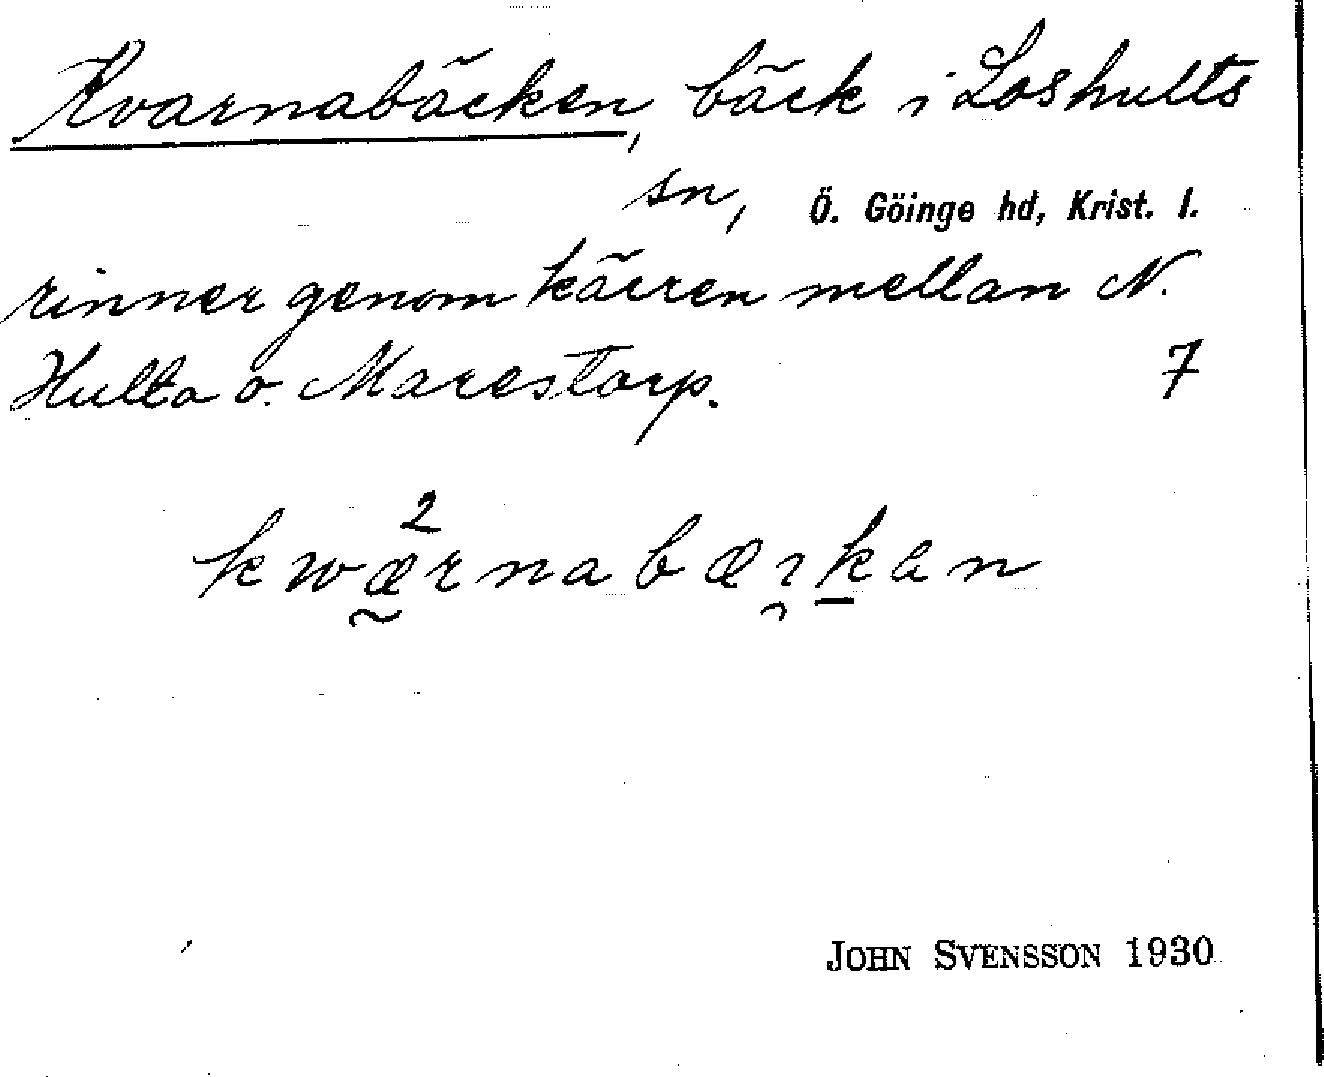 Kvarnabäcken, bäck i Loshults
sn, Ö. Göinge hd, Krist. l.
rinner genom kärren mellan N.
Hulta o. Marestorp. 7
2
kwærnabæɿkan
JOHN SVENSSON 1930